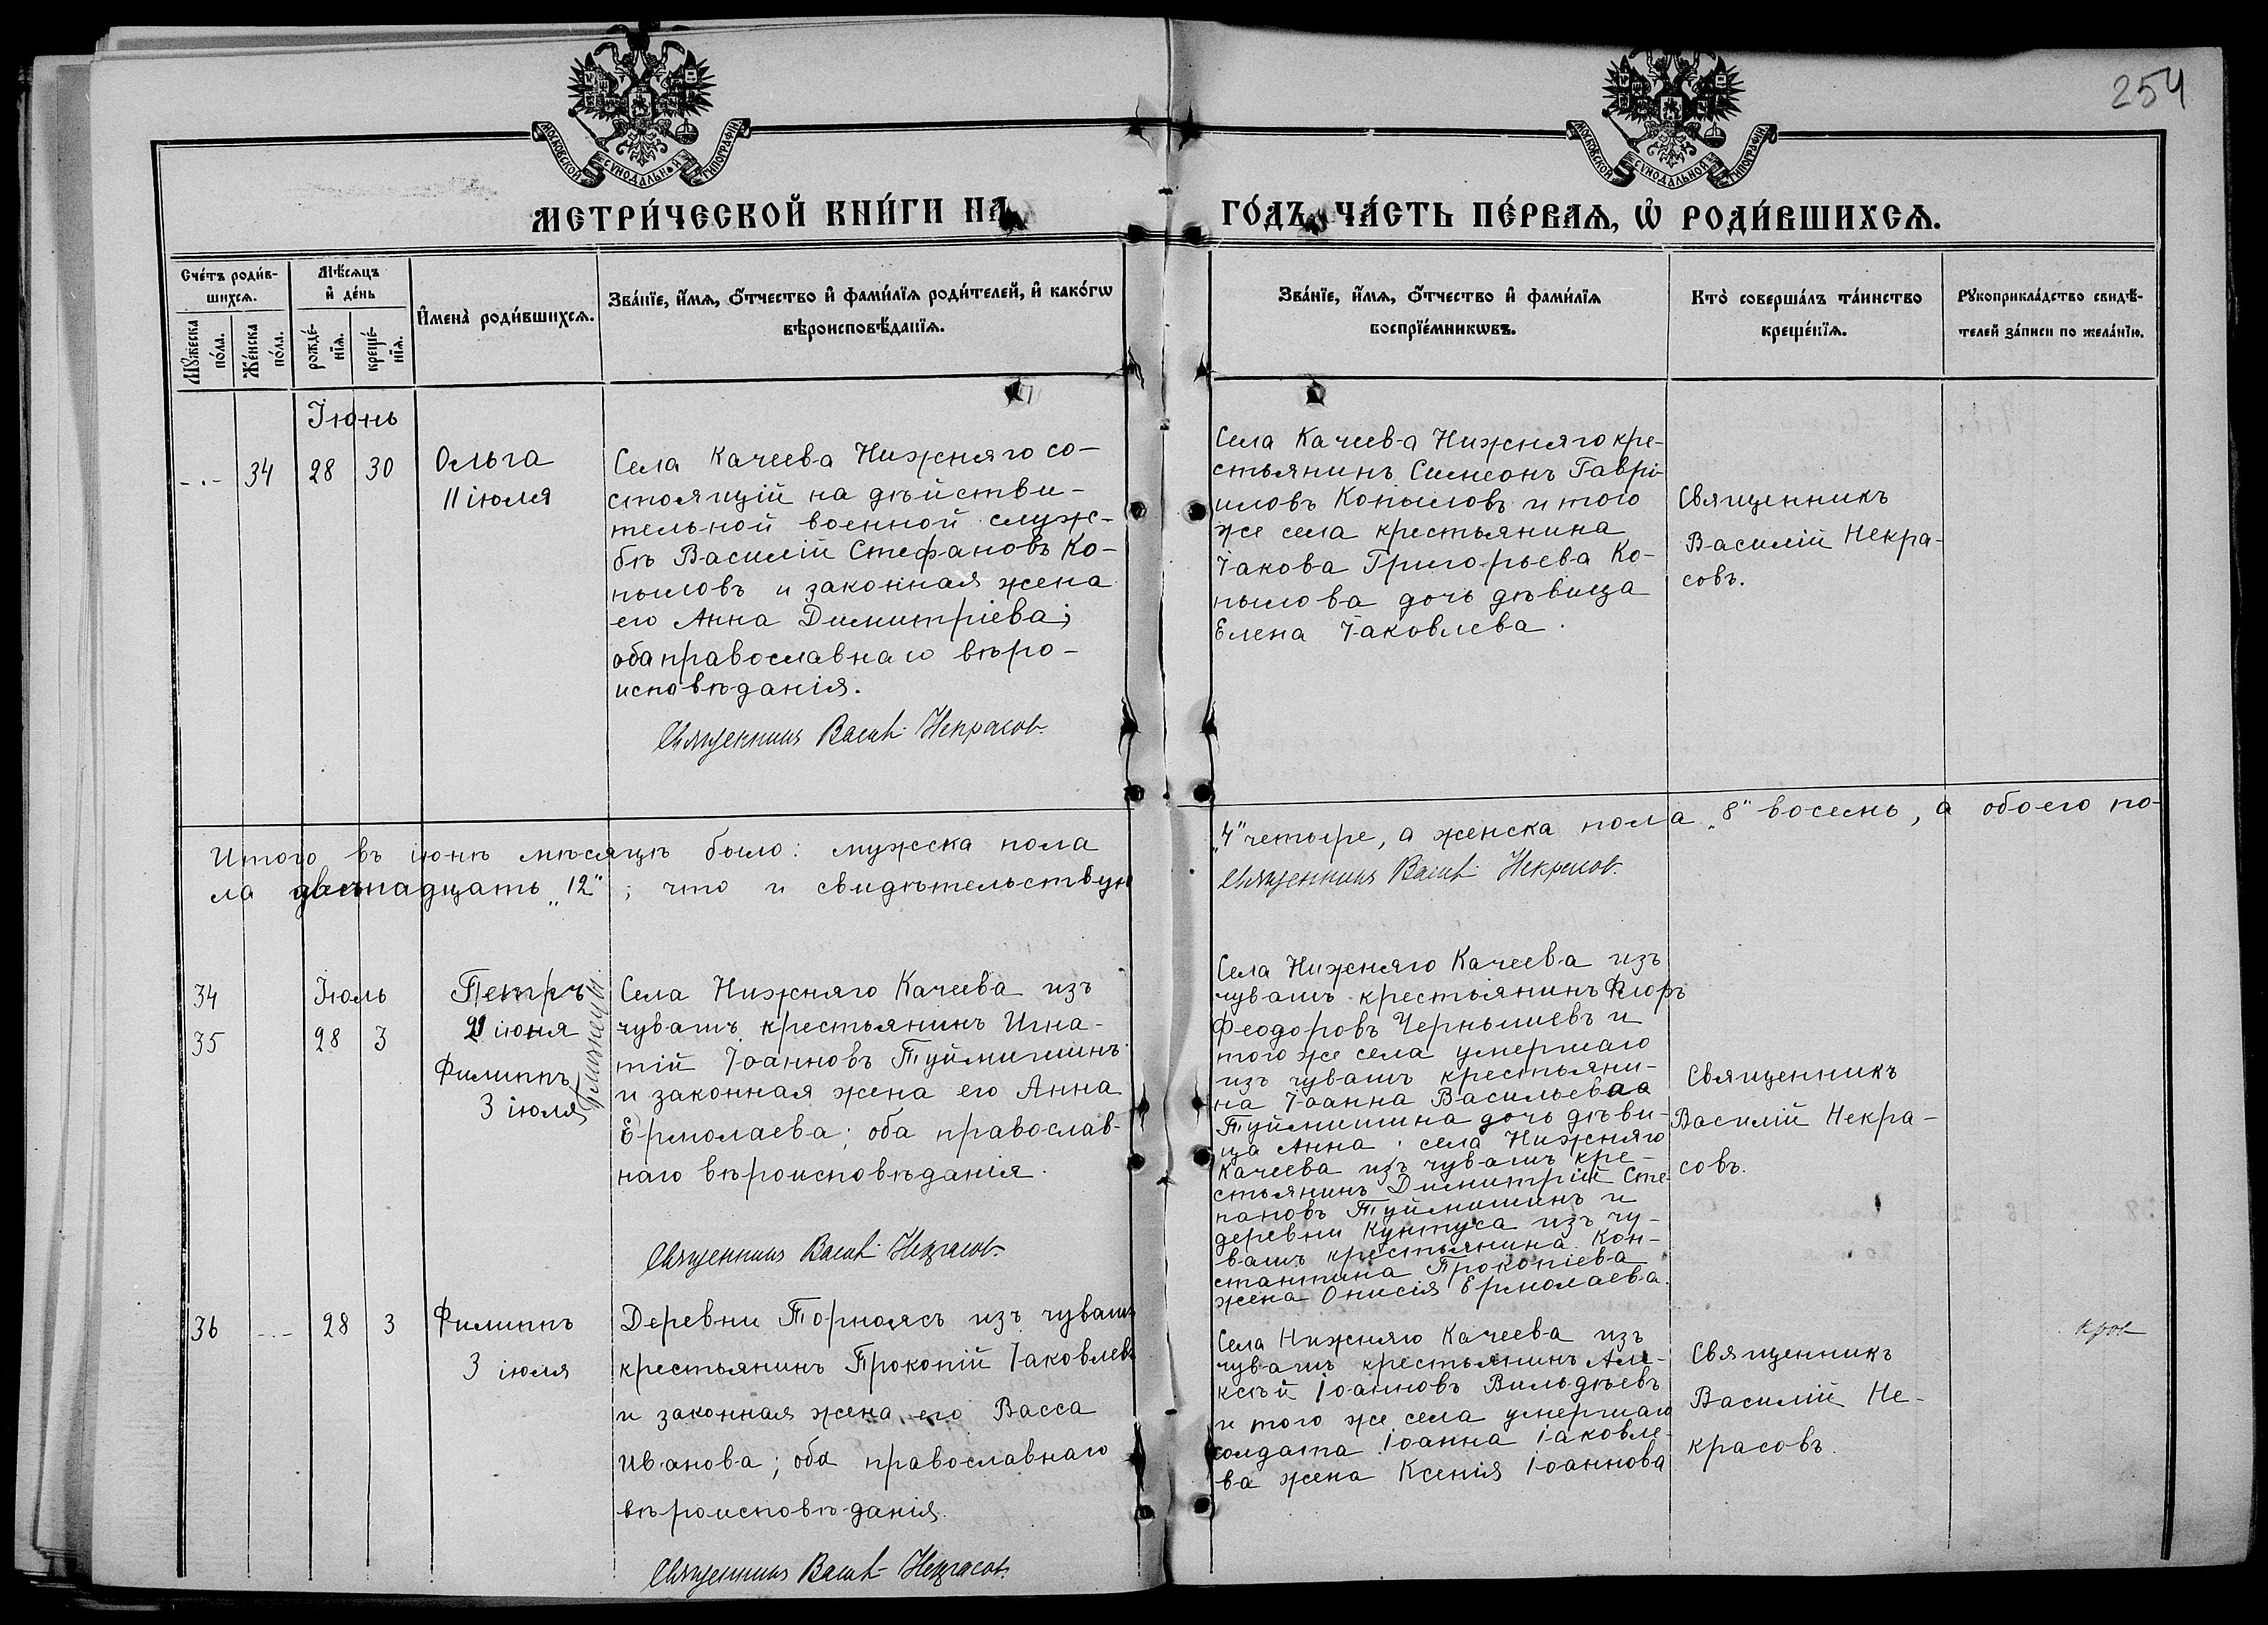 254
МОСКОВСКОЙ СѴНОДАЛЬНОЙ ТИПОГРАФІИ
МОСКОВСКОЙ СѴНОДАЛЬНОЙ ТИПОГРАФІИ
МЕТРИ́ЧЕСКОЙ КНИ́ГИ НА
ГО́ДЪ, ЧА́СТЬ ПЕ́РВАѦ, Ѡ҆ РОДИ́ВШИХСѦ.
Сче́тъ роди́в-
шихсѧ.
Мꙋ́жеска
по́ла.
Же́нска
по́ла.
Мѣ́сѧцъ
и҆ де́нь
рожде́-
нїѧ.
креще́-
нїѧ.
И҆мена̀ роди́вшихсѧ.
Зва́нїе, и҆́мѧ, ѻ҆́тчество и҆ фами́лїѧ роди́телей, и҆ како́гѡ
вѣроисповѣ́данїѧ.
Зва́нїе, и҆́мѧ, ѻ҆́тчество и҆ фами́лїѧ
воспрїе́мникѡвъ.
Кто̀ соверша́лъ та́инство
креще́нїѧ.
Рꙋкоприкла́дство свидѣ́-
телей за́писи по жела́нїю.
Іюнь
-.- 34 28 30
Ольга
11 іюля
Села Качеева Нижняго со-
стоящій на дѣйстви-
тельной военной служ-
бѣ Василій Стефановъ Ко-
пыловъ и законная жена
его Анна Димитріева;
оба православнаго вѣро-
исповѣданія.
Священникъ Васил. Некрасов.
Села Качеева Нижняго кре-
стьянинъ Симеонъ Гаврі-
иловъ Копыловъ и того
же села крестьянина
Іакова Григорьева Ко-
пылова дочь дѣвица
Елена Іаковлева.
Священникъ
Василій Некра-
совъ.
Итого въ іюнѣ мѣсяцѣ было: мужска пола
„4" четыре, а женска пола „8" восемь, а обоего по-
ла двѣнадцать „12"; что и свидѣтельствую
Священникъ Васил. Некрасов.
34 Іюль
35 28 3
Петръ
29 іюня
Филиппъ
3 іюля
близнецы
Села Нижняго Качеева изъ
чувашъ крестьянинъ Игна-
тій Іоанновъ Туймишинъ
и законная жена его Анна
Ермолаева; оба православ-
наго вѣроисповѣданія.
Священникъ Васил. Некрасов.
Села Нижняго Качеева изъ
чувашъ крестьянинъ Флоръ
Феодоровъ Чернышевъ и
того же села умершаго
изъ чувашъ крестьяни-
на Іоанна Васильева
Туймишина дочь дѣви-
ца Анна; села Нижняго
Качеева изъ чувашъ кре-
стьянинъ Димитрій Сте-
пановъ Туймишинъ и
деревни Кунтуса изъ чу-
вашъ крестьянина Кон-
стантина Прокопіева
жена Онисія Ермолаева.
Священникъ
Василій Некра-
совъ.
36 -.- 28 3
Филиппъ
3 іюля
Деревни Торнолясъ изъ чувашъ
крестьянинъ Прокопій Іаковлевъ
и законная жена его Васса
Иванова; оба православнаго
вѣроисповѣданія.
Священникъ Васил. Некрасов.
Села Нижняго Качеева изъ
чувашъ крестьянинъ Але-
ксѣй Іоанновъ Вильдѣевъ
и того же села умершаго
солдата Іоанна Іаковле-
ва жена Ксенія Іоаннова
Священникъ
Василій Не-
красовъ.